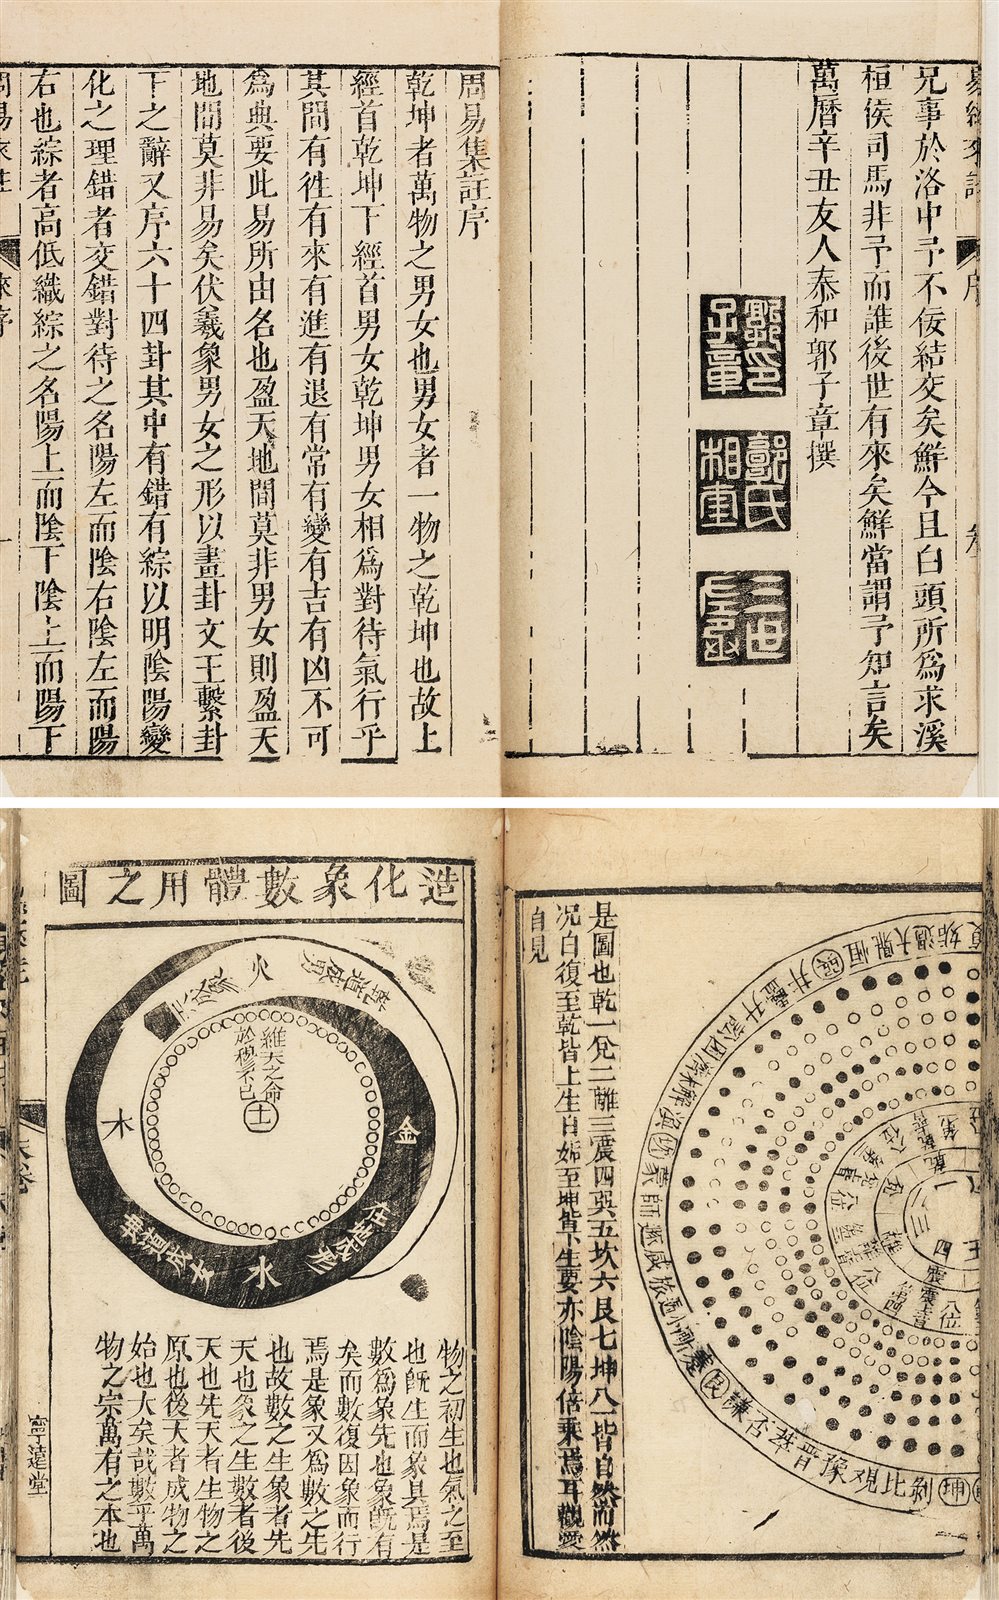 兄事於洛中予不佞結交矣鮮今且白頭所為求溪
桓侯司馬非予而誰後世有來矣鮮當謂予知言矣
萬曆辛丑友人泰和郭子章撰
郭氏
相奎
三世
周易集註序
乾坤者萬物之男女也男女者一物之乾坤也故上
經首乾坤下經首男女乾坤男女相為對待氣行乎
其間有徃有來有進有退有常有變有吉有凶不可
為典要此易所由名也盈天地間莫非男女則盈天
地間莫非易矣伏羲象男女之形以畫卦文王繫卦
下之辭又序六十四卦其中有錯有綜以明陰陽變
化之理錯者交錯對待之名陽左而陰右陰左而陽
右也綜者高低織綜之名陽上而陰下陰上而陽下
是圖也乾一兌二離三震四巽五坎六艮七坤八皆自然而然
況自復至乾皆上生自姤至坤皆下生要亦陰陽倍乘焉耳觀變
自見
姤大過鼎恒巽井蠱升訟困未濟解渙坎蒙師遯咸旅小過漸蹇艮謙否萃晉豫觀比剝坤
造化象數體用之圖
火
金
水
木
土
維天之命
於穆不已
乾道成男
坤道成女
物之初生也氣之至
也旣生而象具焉是
數為象先也象旣有
矣而數復因象而行
焉是象又為數之先
也故數之生象者先
天也象之生數者後
天也先天者生物之
原也後天者成物之
始也大矣哉數乎萬
物之宗萬有之本也
寧遠堂